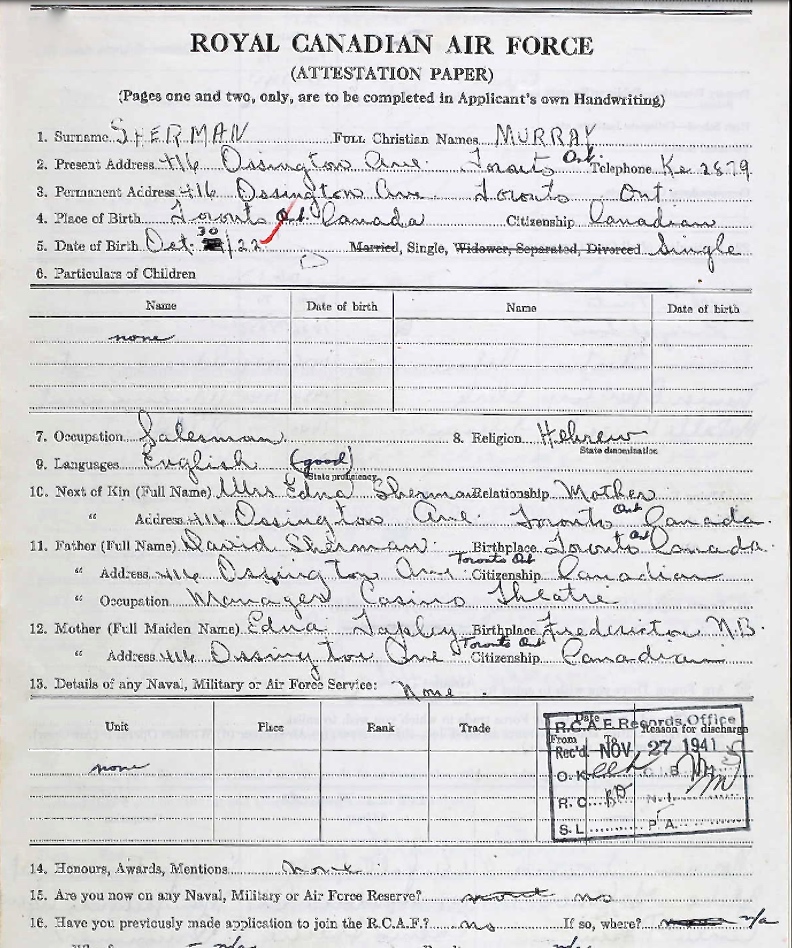 ROYAL CANADIAN AIR FORCE
(ATTESTATION PAPER)
(Pages one and two, only, are to be completed in Applicant's own Handwriting)
1. Surname SHERMAN Full Christian Names MURRAY
2. Present Address 416 Ossington Ave. Toronto Ont Telephone Ke 2879
3. Permanent Address 416 Ossington Ave Toronto Ont.
4. Place of Birth Toronto Ont. Canada Citizenship Canadian
5. Date of Birth Oct. 30/22 Married, Single, Widower, Separated, Divorced Single
6. Particulars of Children
Name Date of birth Name Date of birth
none
7. Occupation Salesman 8. Religion Hebrew
State denomination
9. Languages English (good)
State proficiency
10. Next of Kin (Full Name) Mrs Edna Sherman Relationship Mother
" Address 416 Ossington Ave. Toronto Ont Canada.
11. Father (Full Name) David Sherman Birthplace Toronto Ont Canada.
" Address 416 Ossington Ave Toronto Ont Citizenship Canadian
" Occupation Manager Casino Theatre
12. Mother (Full Maiden Name) Edna Birthplace Fredericton N.B.
" Address 416 Ossington Ave Toronto Ont Citizenship Canadian
13. Details of any Naval, Military or Air Force Service: None.
Unit Place Rank Trade Date Reason for discharge
From To
none
R.C.A.F. Records Office
Rec'd. NOV 27 1941
O.K. C.I.B.
R.C. N.I.
S.L. P.A.
14. Honours, Awards, Mentions none
15. Are you now on any Naval, Military or Air Force Reserve? no
16. Have you previously made application to join the R.C.A.F.? no If so, where? n/a